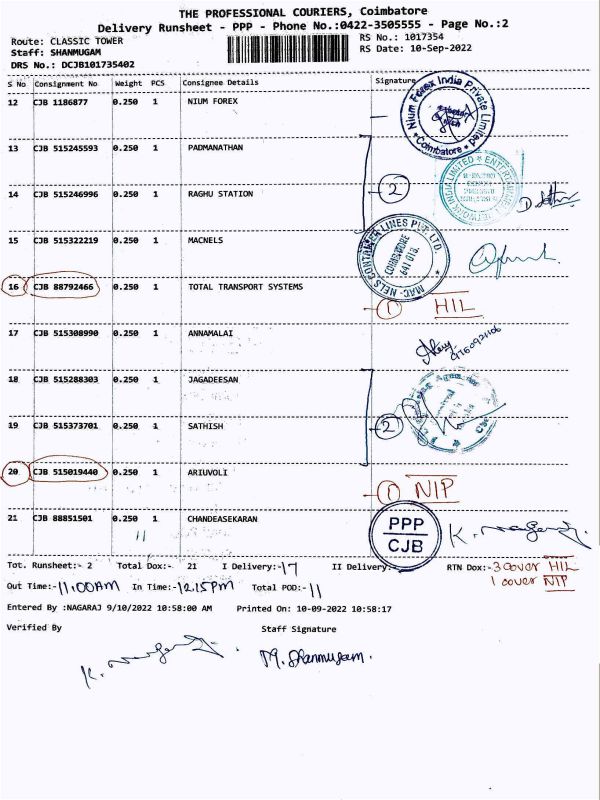 THE PROFESSIONAL COURIERS, Coimbatore
Delivery Runsheet - PPP - Phone No.:0422-3505555 - Page No.:2
Route: CLASSIC TOWER RS No.: 1017354
Staff: SHANMUGAM RS Date: 10-Sep-2022
DRS No.: DCJB101735402
S No Consignment No Weight PCS Consignee Details Signature
12 CJB 1186877 0.250 1 NIUM FOREX
Nium Forex India Private Limited * Coimbatore *
13 CJB 515245593 0.250 1 PADMANATHAN
2
14 CJB 515246996 0.250 1 RAGHU STATION
15 CJB 515322219 0.250 1 MACNELS
MAC-NELS CONTAINER LINES PVT. LTD. COIMBATORE 641 018.
16 CJB 88792466 0.250 1 TOTAL TRANSPORT SYSTEMS
1 HIL
17 CJB 515308990 0.250 1 ANNAMALAI
18 CJB 515288303 0.250 1 JAGADEESAN
19 CJB 515373701 0.250 1 SATHISH
2
20 CJB 515019440 0.250 1 ARIUVOLI
1 NIP
21 CJB 88851501 0.250 1 CHANDEASEKARAN
11
PPP
CJB
K. Nagaraj.
Tot. Runsheet:- 2 Total Dox:- 21 I Delivery:-17 II Delivery:- RTN Dox:-3 cover HIL
1 cover NIP
Out Time:-11.00AM In Time:-12.15PM Total POD:-11
Entered By :NAGARAJ 9/10/2022 10:58:00 AM Printed On: 10-09-2022 10:58:17
Verified By Staff Signature
K. Nagaraj. M. Shanmugam.